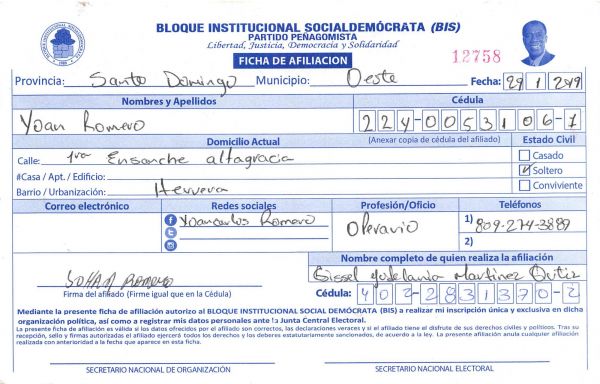 BLOQUE INSTITUCIONAL SOCIALDEMÓCRATA (BIS)
PARTIDO PEÑAGOMISTA
Libertad, Justicia, Democracia y Solidaridad
FICHA DE AFILIACION
12758
Provincia: Santo Domingo Municipio: Oeste Fecha: 29 1 2019
Nombres y Apellidos Cédula
Yoan Romero 224-0053106-7
Domicilio Actual (Anexar copia de cédula del afiliado) Estado Civil
Calle: 1ra Ensanche altagracia Casado
#Casa / Apt. / Edificio: Soltero
Barrio / Urbanización: Herrera Conviviente
Correo electrónico Redes sociales Profesión/Oficio Teléfonos
Yoancarlos Romero Operario 1) 809-274-3889
2)
Nombre completo de quien realiza la afiliación
Martinez Ortiz
YOHAN ROMERO
Firma del afiliado (Firme igual que en la Cédula) Cédula: 402-2831370-2
Mediante la presente ficha de afiliación autorizo al BLOQUE INSTITUCIONAL SOCIAL DEMÓCRATA (BIS) a realizar mi inscripción única y exclusiva en dicha
organización política, así como a registrar mis datos personales ante la Junta Central Electoral.
La presente ficha de afiliación es válida si los datos ofrecidos por el afiliado son correctos, las declaraciones veraces y si el afiliado tiene el disfrute de sus derechos civiles y políticos. Tras su
recepción, sello y firmas autorizadas el afiliado ejercerá todos los derechos y los deberes estatutariamente sancionados, de acuerdo a la ley. La presente afiliación anula cualquier afiliación
realizada con anterioridad a la fecha que aparece en esta ficha.
SECRETARIO NACIONAL DE ORGANIZACIÓN SECRETARIO NACIONAL ELECTORAL